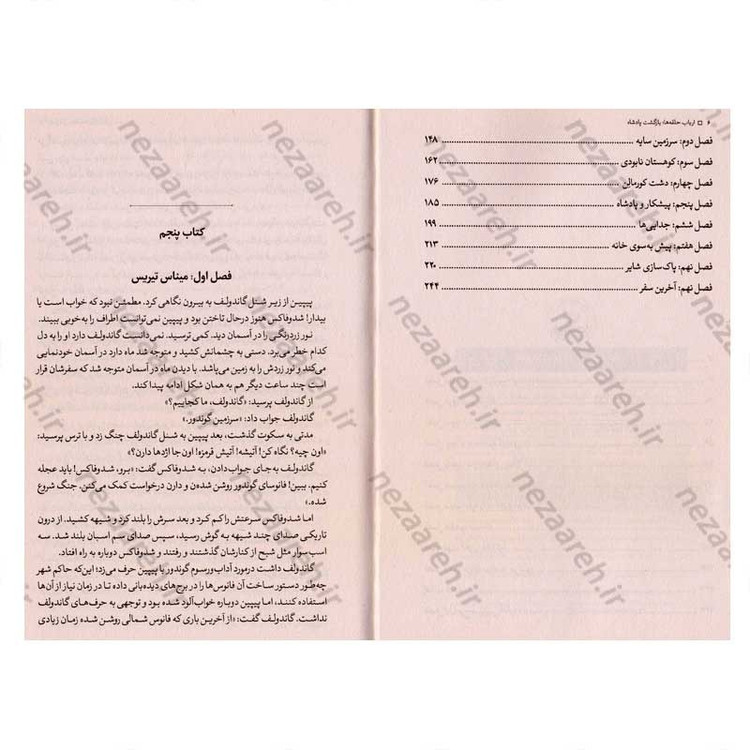 ۶ □ ارباب حلقه‌ها: بازگشت پادشاه
فصل دوم: سرزمین سایه ........ ۱۴۸
فصل سوم: کوهستان نابودی ........ ۱۶۲
فصل چهارم: دشت کورمالن ........ ۱۷۶
فصل پنجم: پیشکار و پادشاه ........ ۱۸۵
فصل ششم: جدایی‌ها ........ ۱۹۹
فصل هفتم: پیش به‌سوی خانه ........ ۲۱۳
فصل نهم: پاک‌سازی شایر ........ ۲۲۰
فصل نهم: آخرین سفر ........ ۲۴۴
کتاب پنجم
فصل اول: میناس تیریس
پیپین از زیر شنل گاندولف به بیرون نگاهی کرد. مطمئن نبود که خواب است یا
بیدار! شدوفاکس هنوز درحال تاختن بود و پیپین نمی‌توانست اطراف را به‌خوبی ببیند.
نور زردرنگی را در آسمان دید. کمی ترسید. نمی‌دانست گاندولف دارد او را به دل
کدام خطر می‌برد. دستی به چشمانش کشید و متوجه شد ماه دارد در آسمان خودنمایی
می‌کند و نور زردش را به زمین می‌پاشد. با دیدن ماه در آسمان متوجه شد که سفرشان قرار
است چند ساعت دیگر هم به همان شکل ادامه پیدا کند.
از گاندولف پرسید: «گاندولف، ما کجاییم؟»
گاندولف جواب داد: «سرزمین گوندور.»
مدتی به سکوت گذشت، بعد پیپین به شنل گاندولف چنگ زد و با ترس پرسید:
«اون چیه؟ نگاه کن! آتیشه! آتیش قرمزه! اون‌جا اژدها دارن؟»
گاندولف به‌جای جواب‌دادن، به شدوفاکس گفت: «برو، شدوفاکس! باید عجله
کنیم. ببین! فانوسای گوندور روشن شده‌ن و دارن درخواست کمک می‌کنن. جنگ شروع
شده.»
اما شدوفاکس سرعتش را کم کرد و بعد سرش را بلند کرد و شیهه کشید. از درون
تاریکی صدای چند شیهه به گوش رسید، سپس صدای سم اسبان بلند شد. سه
اسب‌سوار مثل شبح از کنارشان گذشتند و رفتند و شدوفاکس دوباره به راه افتاد.
گاندولف داشت درمورد آداب‌ورسوم گوندور با پیپین حرف می‌زد؛ این‌که حاکم شهر
چه‌طور دستور ساخت آن فانوس‌ها را در برج‌های دیده‌بانی داده تا در زمان نیاز از آن‌ها
استفاده کنند، اما پیپین دوباره خواب‌آلود شده بود و توجهی به حرف‌های گاندولف
نداشت. گاندولف گفت: «از آخرین باری که فانوس شمالی روشن شده زمان زیادی
nezaareh.ir
nezaareh.ir
nezaareh.ir
nezaareh.ir
nezaareh.ir
nezaareh.ir